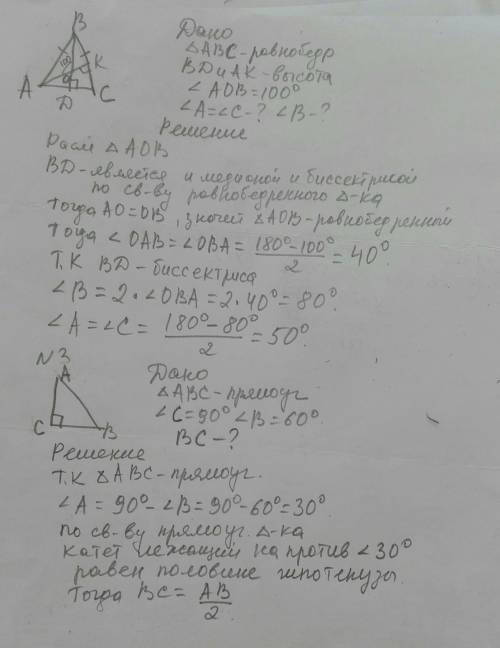 B
100
K
O
A
D
C
Дано
△ABC-равнобедр
BD и AK-высота
∠AOB=100°
∠A=∠C-? ∠B-?
Решение
Расм △AOB
BD-является и медионой и биссектрисой
по св-ву равнобедренного △-ка
тогда AO=OB, значит △AOB-равнобедренной
Тогда ∠OAB=∠OBA= (180°-100°)/2 =40°
Т.К BD-биссектриса
∠B=2·∠OBA=2·40°=80°
∠A=∠C= (180°-80°)/2 =50°.
N3
A
C
B
Дано
△ABC-прямоуг
∠C=90° ∠B=60°
BC-?
Решение
Т.К △ABC-прямоуг.
∠A=90°-∠B=90°-60°=30°
по св-ву прямоуг. △-ка
катет лежащий на против ∠30°
равен половине гипотенузы.
Тогда BC= AB/2.